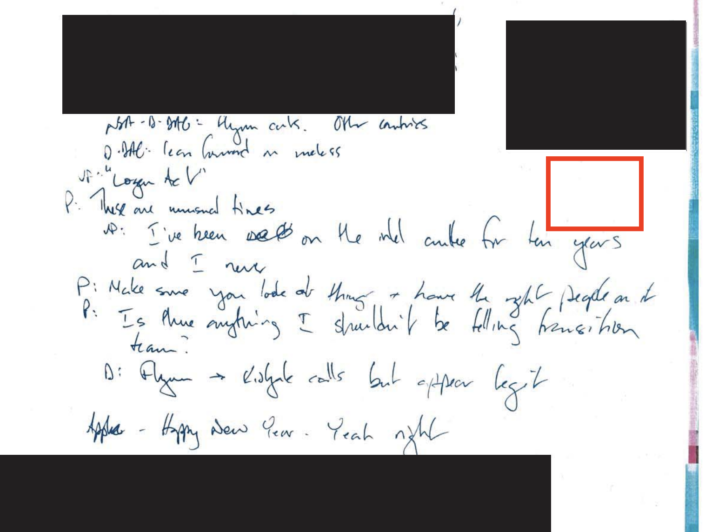 NSA-D-DAG: Flynn cuts. Other countries
D-DAG: lean forward on unclass
VP: "Logan Act"
P: These are unusual times
VP: I've been on the intel cmtee for ten years
and I never
P: Make sure you look at things + have the right people on it
P: Is there anything I shouldn't be telling transition
team?
D: Flynn → Kislyak calls but appear legit
- Happy New Year. Yeah right